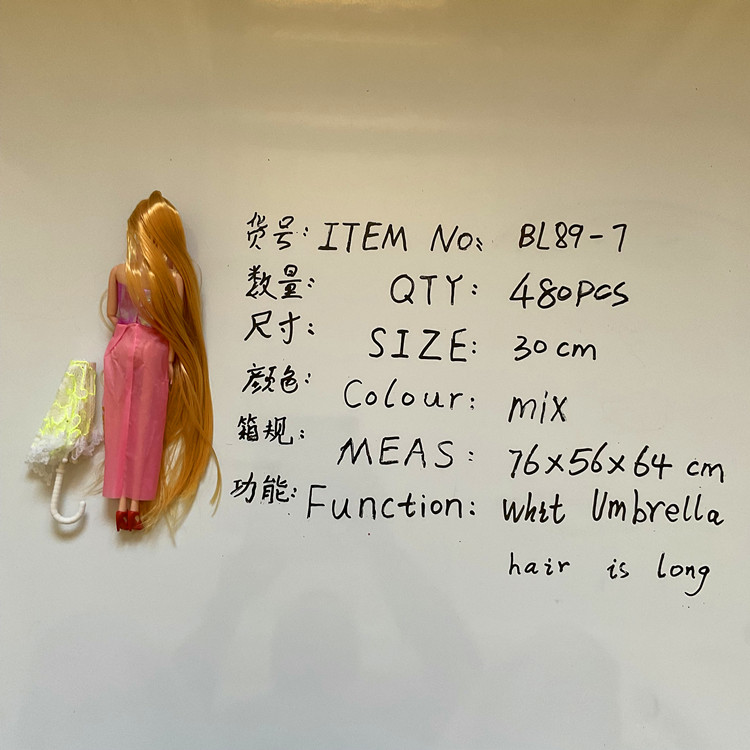 货号: ITEM No: BL89-7
数量: QTY: 480pcs
尺寸: SIZE: 30cm
颜色: Colour: mix
箱规: MEAS: 76x56x64 cm
功能: Function: Whit Umbrella
hair is long